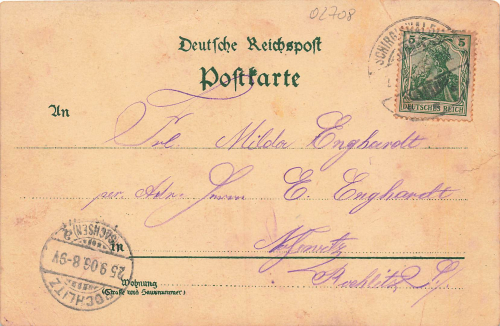 02708
Deutsche Reichspost
Postkarte
5 5
DEUTSCHES REICH
An
Frl. Milda Enghardt
per. Adr. Herrn E. Enghardt
in
Rochlitz S/.
(SACHSEN)
25.9.03.8-9V
ROCHLITZ
Wohnung
(Straße und Hausnummer)